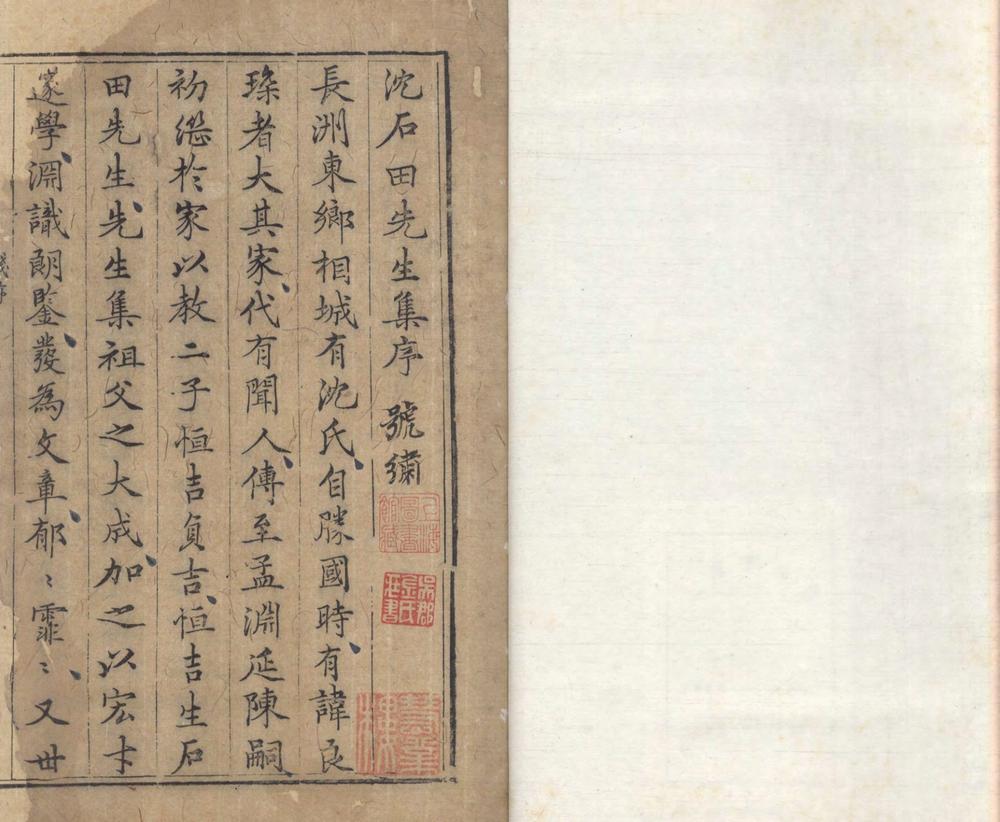 沈石田先生集序 號繍
長洲東鄉相城有沈氏自勝國時有諱良
琛者大其家代有聞人傳至孟淵延陳嗣
初𢙣於家以教二子恒吉貞吉恒吉生石
田先生先生集祖父之大成加之以宏才
邃學淵識朗鑒發為文章郁〻霏〻又世
吳郡